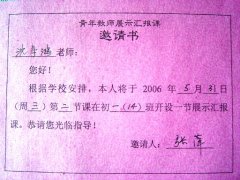 青年教师展示汇报课
邀请书
老师：
您好！
根据学校安排，本人将于 2006 年 5 月 31 日
(周三) 第二节课在初一(14)班开设一节展示汇报
课。恭请您光临指导！
邀请人：张萍